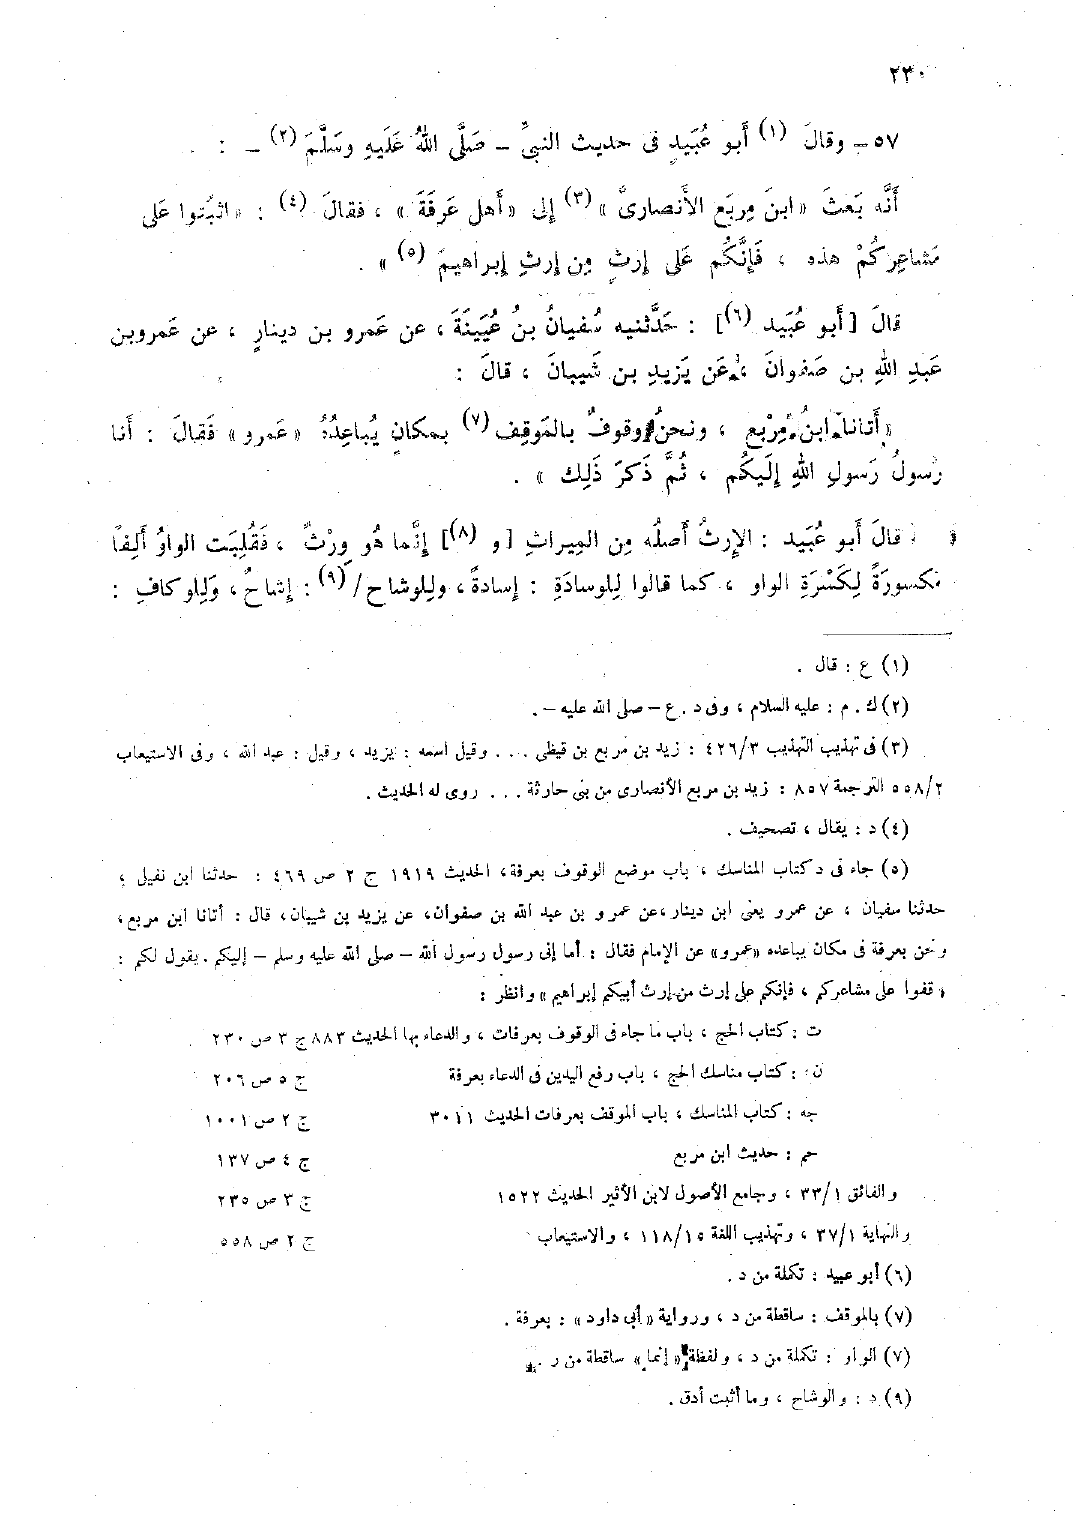 ٢٣٠
٥٧ـ وقالَ (١) أَبو عُبَيدٍ فى حديث النبىِّ – صَلَّى اللهُ عَلَيهِ وسَلَّمَ (٢) – :
أَنَّه بَعثَ «ابنَ مِربَع الأَنصارىَّ» (٣) إلى «أَهل عَرفَةَ» ، فقالَ (٤) : «اثبُتوا عَلى
مَشاعِرِكُمْ هذه ، فَإِنَّكُم عَلى إرثٍ مِن إرثِ إبراهيمَ (٥) » .
قالَ [أَبو عُبَيد (٦)] : حَدَّثنيه سُفيانُ بنُ عُيَينَةَ ، عن عَمرو بن دينارٍ ، عن عَمروبن
عَبدِ اللهِ بن صَفوانَ ، عَن يَزيدِ بن شَيبانَ ، قالَ :
«أَتانا ابنُ مِرْبَع ، ونحنُ وقوفٌ بالمَوقِف (٧) بمكانٍ يُباعِدُهُ «عَمرو» فَقالَ : أَنا
رَسولُ رَسولِ اللهِ إلَيكُم ، ثُمَّ ذَكرَ ذَلِك » .
قالَ أَبو عُبَيد : الإرثُ أَصلُه مِن المِيراثِ [و (٨)] إنَّما هُو وِرْثٌ ، فَقُلِبَت الواوُ أَلِفًا
مَكسورَةً لِكَسْرَةِ الواو ، كما قالوا لِلوسادَةِ : إسادةً ، ولِلوشاح/ (٩) : إشاحٌ ، وَلِلوكافِ :
(١) ع : قال .
(٢) ك . م : عليه السلام ، وفى د . ع – صلى الله عليه – .
(٣) فى تهذيب التهذيب ٤٢٦/٣ : زيد بن مربع بن قيظى ... وقيل اسمه : يزيد ، وقيل : عبد الله ، وفى الاستيعاب
٥٥٨/٢ الترجمة ٨٥٧ : زيد بن مربع الأنصارى من بنى حارثة ... روى له الحديث .
(٤) د : يقال ، تصحيف .
(٥) جاء فى د كتاب المناسك ، باب موضع الوقوف بعرفة، الحديث ١٩١٩ ج ٢ ص ٤٦٩ : حدثنا ابن نفيل ،
حدثنا سفيان ، عن عمرو يعنى ابن دينار ،عن عمرو بن عبد الله بن صفوان، عن يزيد بن شيبان، قال : أتانا ابن مربع ،
ونحن بعرفة فى مكان يباعده «عمرو» عن الإمام فقال : أما إنى رسول رسول الله – صلى الله عليه وسلم – إليكم . يقول لكم :
قفوا على مشاعركم ، فإنكم على إرث من إرث أبيكم إبراهيم » وانظر :
ت : كتاب الحج ، باب ما جاء فى الوقوف بعرفات ، والدعاء بها الحديث ٨٨٣ ج ٣ ص ٢٣٠
ن : كتاب مناسك الحج ، باب رفع اليدين فى الدعاء بعرفة ج ٥ ص ٢٠٦
جه : كتاب المناسك ، باب الموقف بعرفات الحديث ٣٠١١ ج ٢ ص ١٠٠١
حم : حديث ابن مربع ج ٤ ص ١٣٧
والفائق ٣٣/١ ، وجامع الأصول لابن الأثير الحديث ١٥٢٢ ج ٣ ص ٢٣٥
والنهاية ٣٧/١ ، وتهذيب اللغة ١١٨/١٥ ، والاستيعاب ج ٢ ص ٥٥٨
(٦) أبو عبيد : تكملة من د .
(٧) بالموقف : ساقطة من د ، ورواية «أبى داود» : بعرفة .
(٧) الواو : تكملة من د ، ولفظة «إنما» ساقطة من ر .
(٩) د : والوشاح ، وما أثبت أدق .